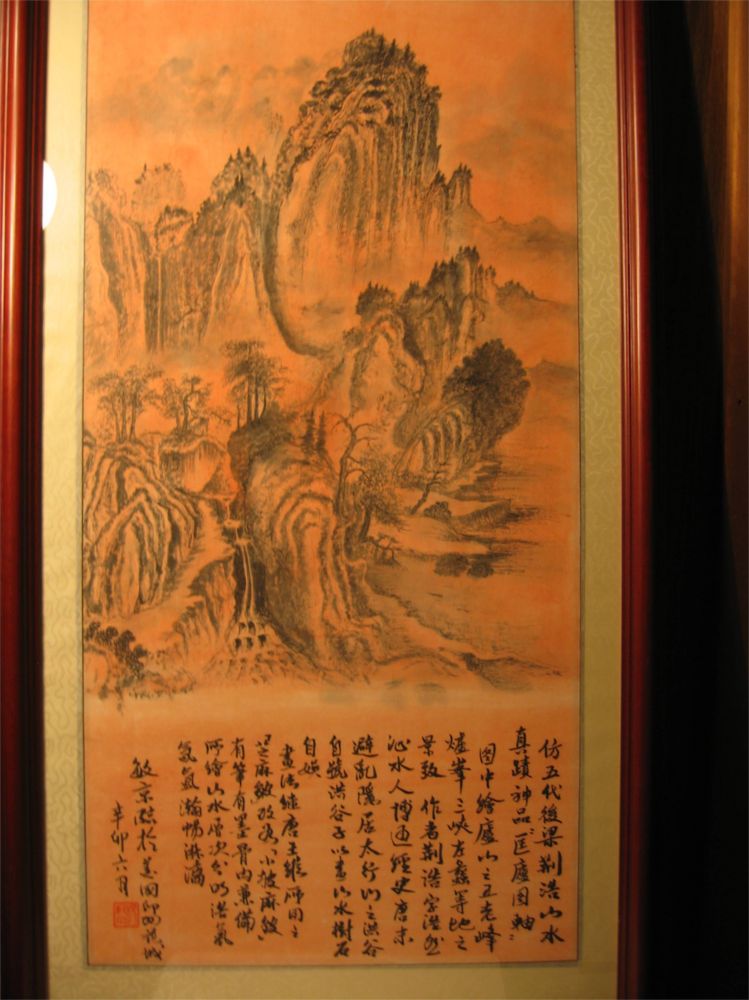 仿五代後梁荆浩山水
真蹟神品「匡廬图軸」
图中繪廬山之五老峰
爐峯三峡左蠡等地之
景致 作者荆浩字浩然
沁水人博通經史唐末
避乱隱居太行山之洪谷
自號洪谷子以畫山水樹石
自娱
畫法继唐王维所用之
「芝麻皴」改為「小披麻皴」
有筆有墨骨肉兼備
所繪山水層次分明浩氣
氤氲瀚暢淋漓
敏京临於美国印州
辛卯六月